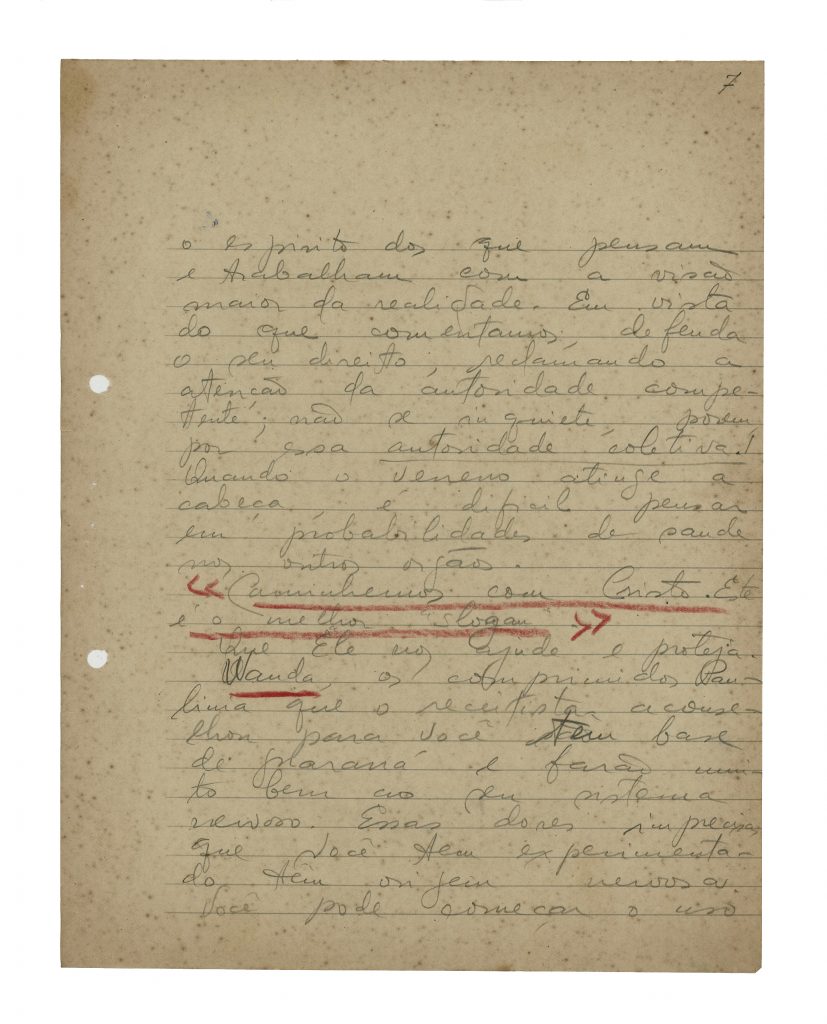 7
o espirito dos que pensam
e trabalham com a visão
maior da realidade. Em vista
do que comentamos, defenda
o seu direito, reclamando a
atenção da autoridade compe-
tente; não se inquiete, porem,
por essa autoridade coletiva!
Quando o veneno atinge a
cabeça, é dificil pensar
em probabilidades de saude
nos outros orgãos.
«Caminhemos com Cristo. Este
é o melhor slogan.»
Que Ele nos ajude e proteja.
Wanda, os comprimidos Pau-
linia que o receitista aconse-
lhou para você têm base
de guaraná e farão mui-
to bem ao seu sistema
nervoso. Essas dores imprecisas
que você tem experimenta-
do têm origem nervosa.
Você pode começar o uso